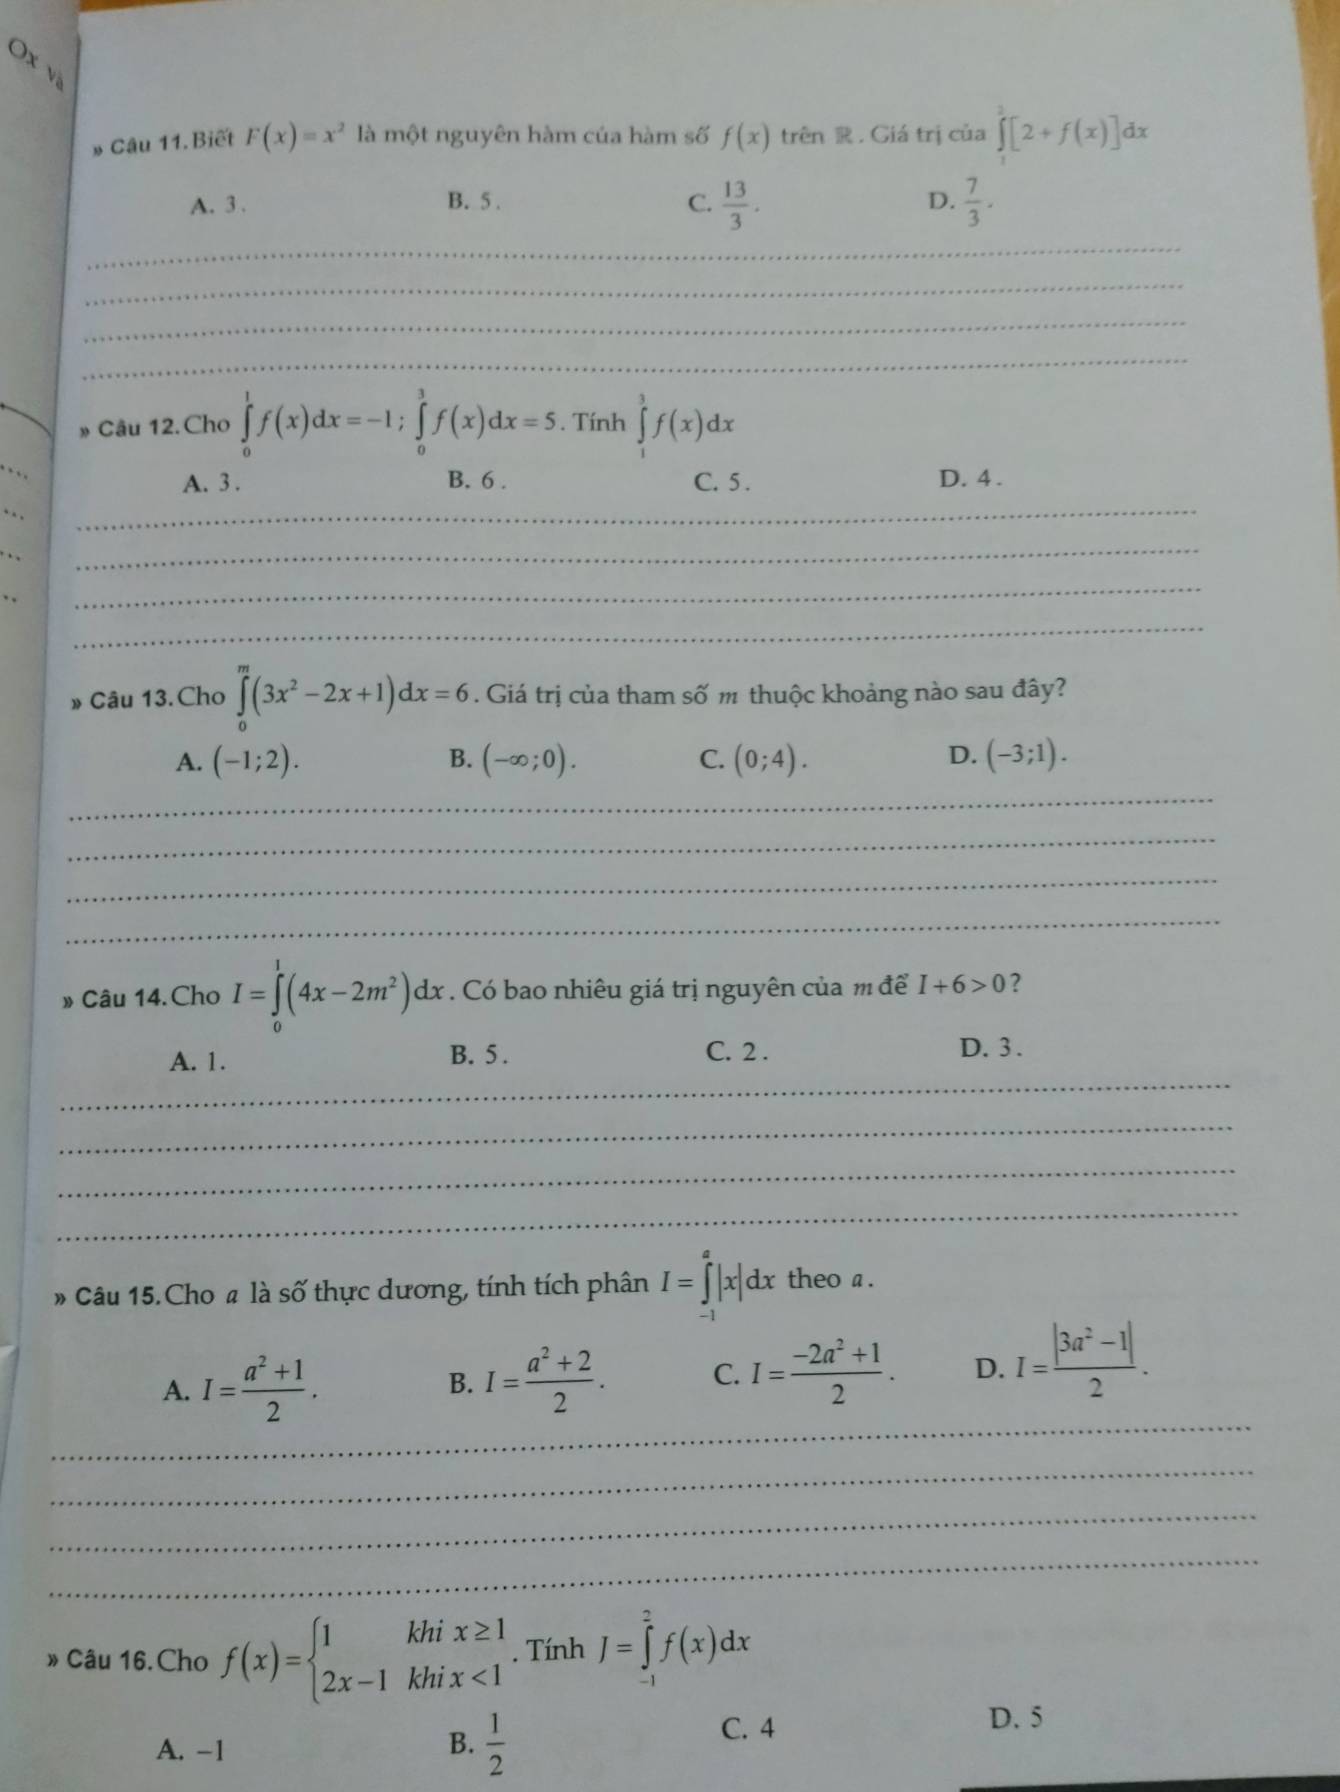 Ox và
» Câu 11. Biết F(x) = x² là một nguyên hàm của hàm số f(x) trên ℝ. Giá trị của ∫₁²[2 + f(x)]dx
A. 3. B. 5. C. 13/3. D. 7/3.
» Câu 12. Cho ∫₀¹ f(x)dx = −1; ∫₀³ f(x)dx = 5. Tính ∫₁³ f(x)dx
A. 3. B. 6. C. 5. D. 4.
» Câu 13. Cho ∫₀ᵐ (3x² − 2x + 1)dx = 6. Giá trị của tham số m thuộc khoảng nào sau đây?
A. (−1;2). B. (−∞;0). C. (0;4). D. (−3;1).
» Câu 14. Cho I = ∫₀¹ (4x − 2m²)dx. Có bao nhiêu giá trị nguyên của m để I + 6 > 0?
A. 1. B. 5. C. 2. D. 3.
» Câu 15. Cho a là số thực dương, tính tích phân I = ∫₋₁ᵃ |x|dx theo a.
A. I = (a² + 1)/2. B. I = (a² + 2)/2. C. I = (−2a² + 1)/2. D. I = |3a² − 1|/2.
» Câu 16. Cho f(x) = {1 khi x ≥ 1
2x − 1 khi x < 1. Tính J = ∫₋₁² f(x)dx
A. −1 B. 1/2 C. 4 D. 5